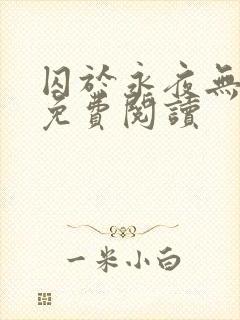 囚於永夜無
免費閱讀
一米小白